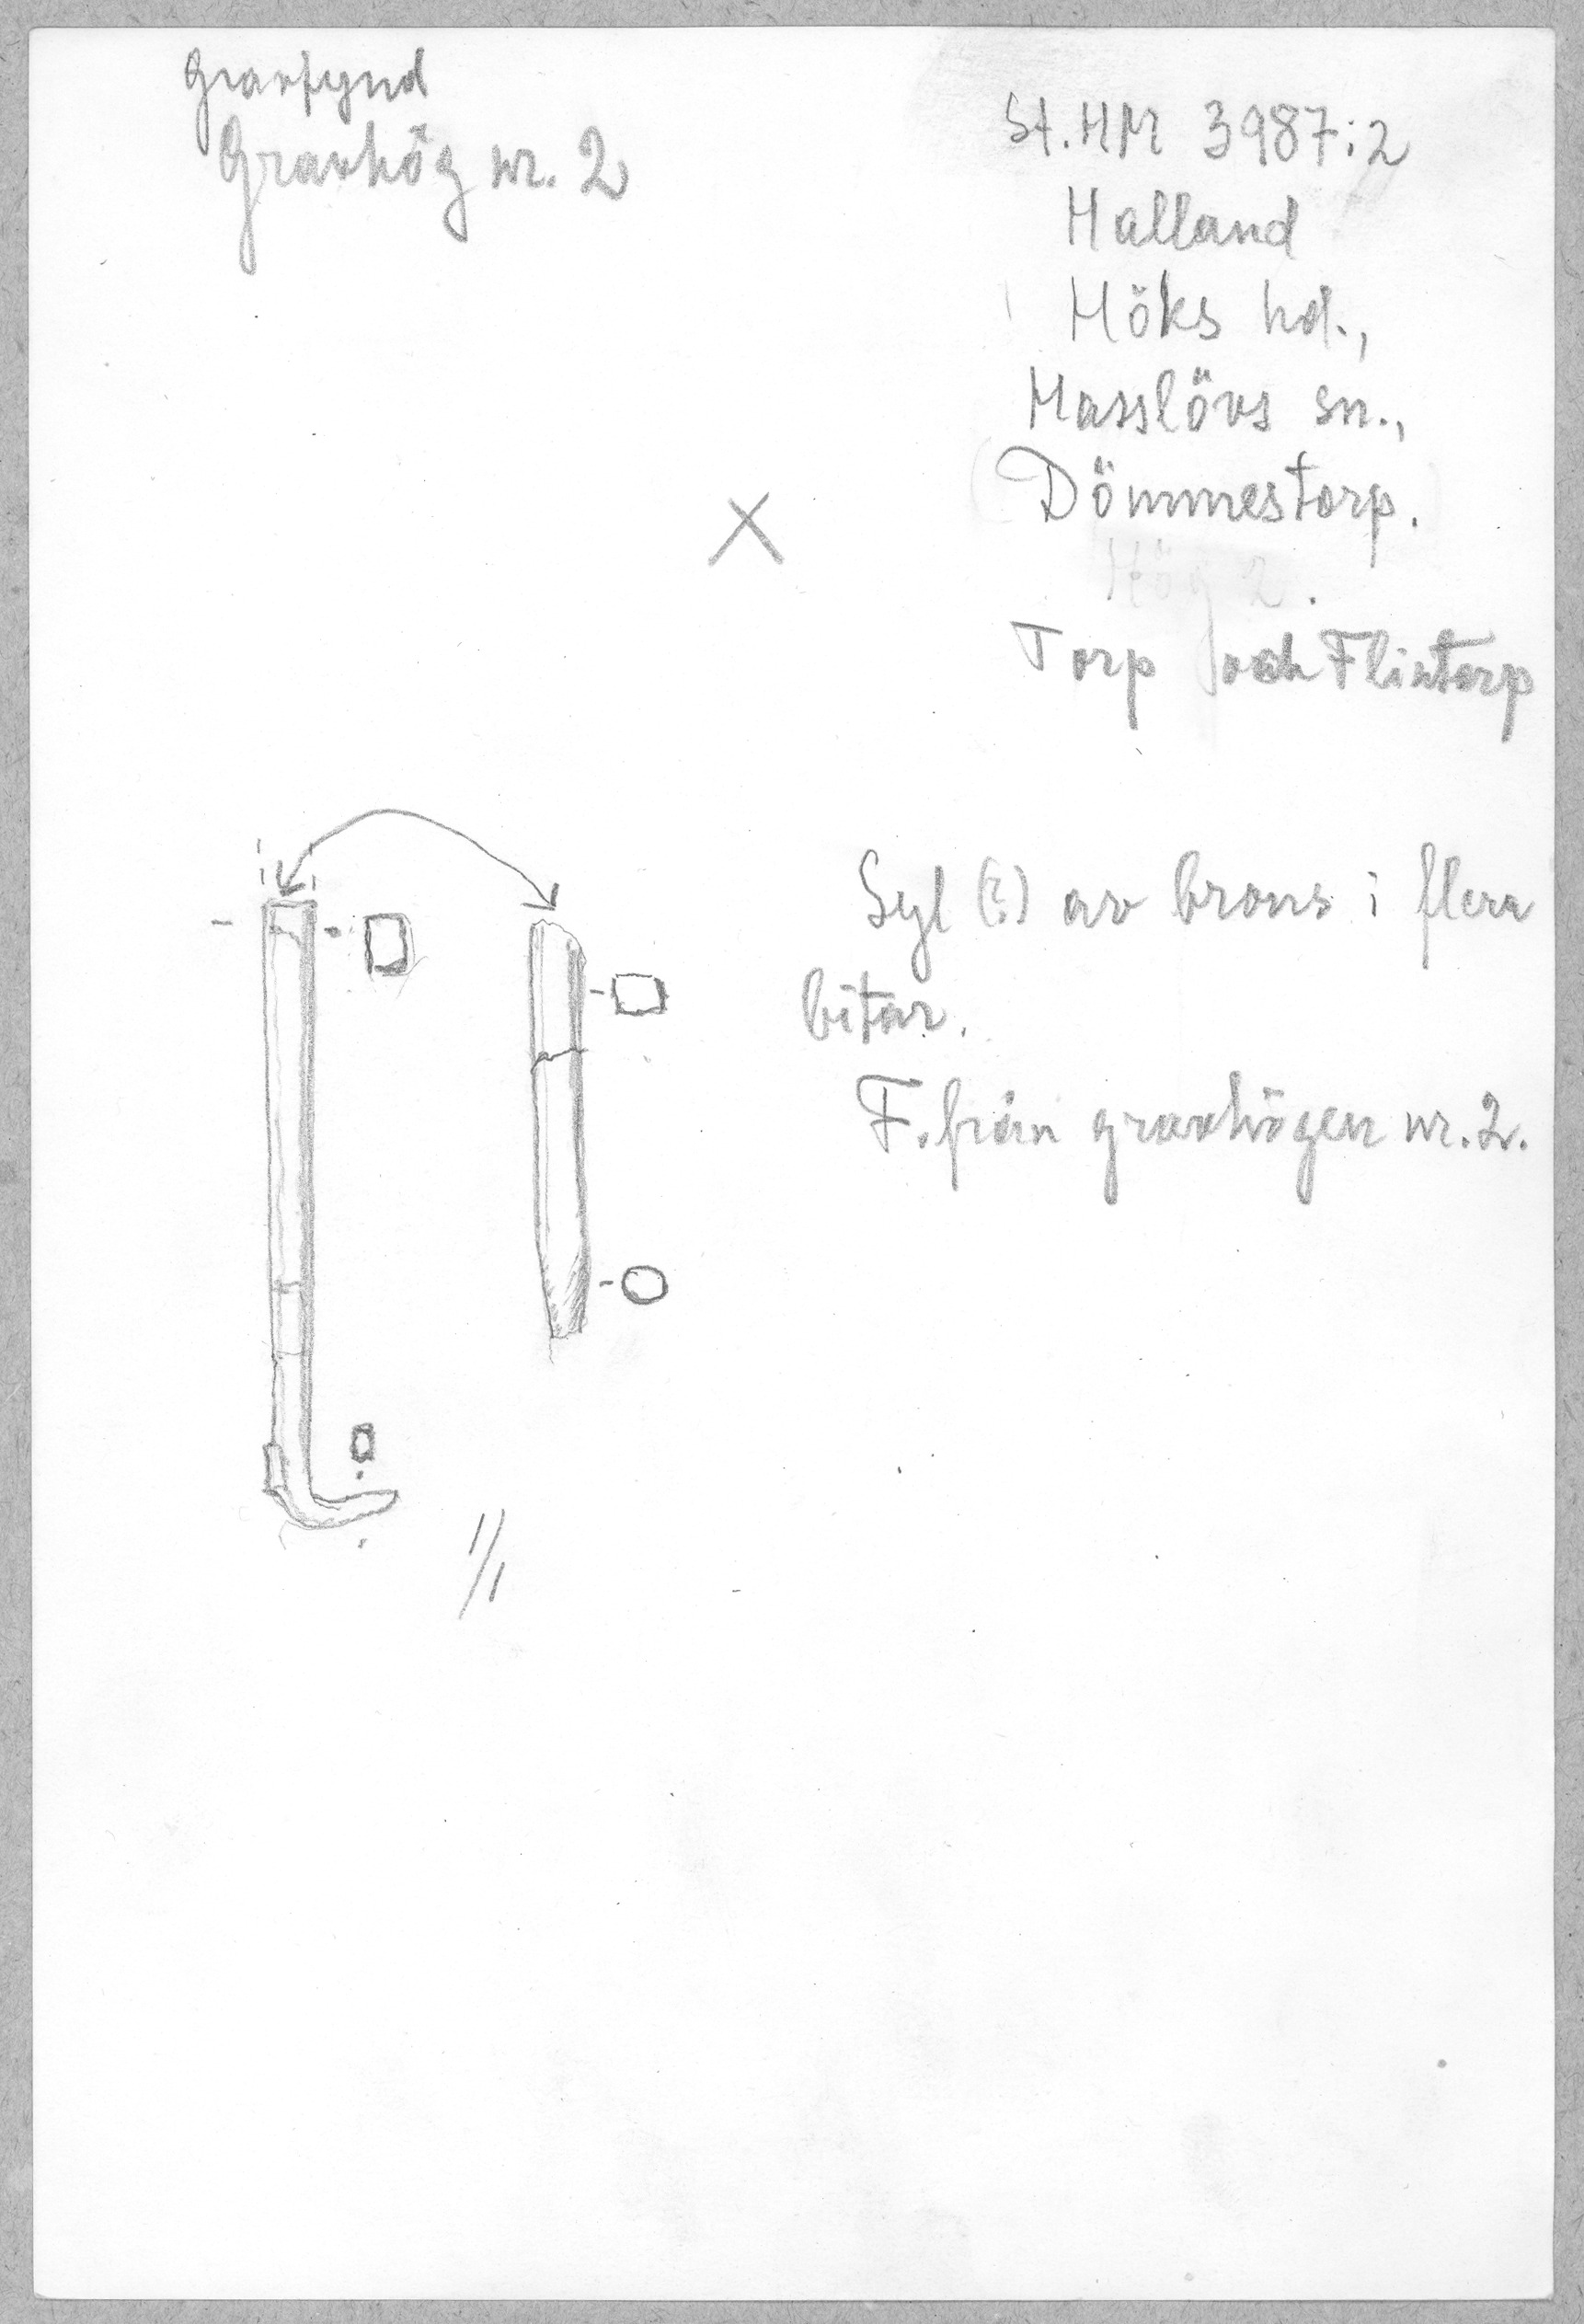 Gravfynd
Gravhög nr. 2
St. HM 3987:2
Halland
Höks hd.,
Hasslövs sn.,
Dömmestorp.
Hög 2.
Torp och Flintorp
Syl (?) av brons i flera
bitar.
F. från gravhögen nr. 2.
1/1